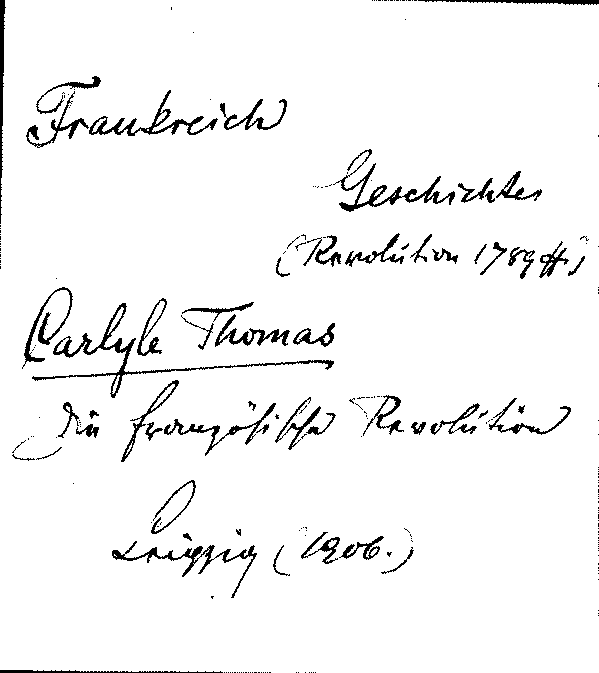 Frankreich
Geschichte
(Revolution 1789 ff.)
Carlyle Thomas
die französische Revolution
Leipzig (1906.)